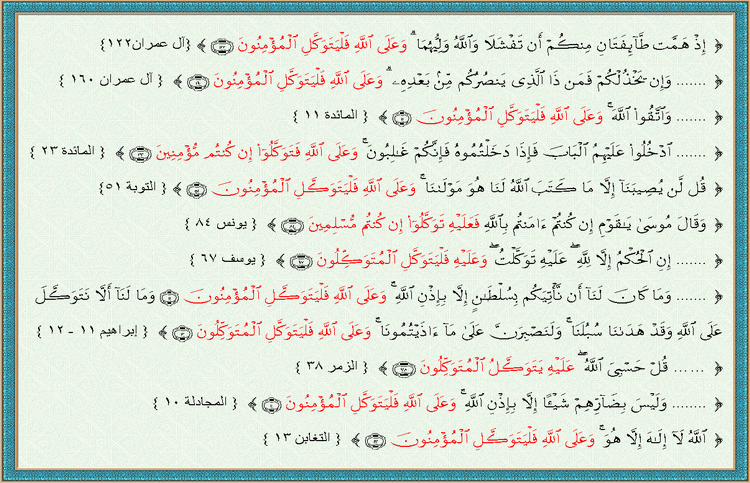 ﴿ إِذْ هَمَّت طَّآئِفَتَانِ مِنكُمْ أَن تَفْشَلَا وَٱللَّهُ وَلِيُّهُمَا ۗ وَعَلَى ٱللَّهِ فَلْيَتَوَكَّلِ ٱلْمُؤْمِنُونَ ﴾ {آل عمران١٢٢}
﴿ ....... وَإِن يَخْذُلْكُمْ فَمَن ذَا ٱلَّذِى يَنصُرُكُم مِّنۢ بَعْدِهِۦ ۗ وَعَلَى ٱللَّهِ فَلْيَتَوَكَّلِ ٱلْمُؤْمِنُونَ ﴾ { آل عمران ١٦٠ }
﴿ ....... وَٱتَّقُوا۟ ٱللَّهَ ۚ وَعَلَى ٱللَّهِ فَلْيَتَوَكَّلِ ٱلْمُؤْمِنُونَ ﴾ { المائدة ١١ }
﴿ ....... ٱدْخُلُوا۟ عَلَيْهِمُ ٱلْبَابَ فَإِذَا دَخَلْتُمُوهُ فَإِنَّكُمْ غَـٰلِبُونَ ۚ وَعَلَى ٱللَّهِ فَتَوَكَّلُوٓا۟ إِن كُنتُم مُّؤْمِنِينَ ﴾ { المائدة ٢٣ }
﴿ قُل لَّن يُصِيبَنَآ إِلَّا مَا كَتَبَ ٱللَّهُ لَنَا هُوَ مَوْلَىٰنَا ۚ وَعَلَى ٱللَّهِ فَلْيَتَوَكَّلِ ٱلْمُؤْمِنُونَ ﴾ { التوبة ٥١}
﴿ وَقَالَ مُوسَىٰ يَـٰقَوْمِ إِن كُنتُمْ ءَامَنتُم بِٱللَّهِ فَعَلَيْهِ تَوَكَّلُوٓا۟ إِن كُنتُم مُّسْلِمِينَ ﴾ { يونس ٨٤ }
﴿ ....... إِنِ ٱلْحُكْمُ إِلَّا لِلَّهِ ۖ عَلَيْهِ تَوَكَّلْتُ ۖ وَعَلَيْهِ فَلْيَتَوَكَّلِ ٱلْمُتَوَكِّلُونَ ﴾ { يوسف ٦٧ }
﴿ ....... وَمَا كَانَ لَنَآ أَن نَّأْتِيَكُم بِسُلْطَـٰنٍ إِلَّا بِإِذْنِ ٱللَّهِ ۚ وَعَلَى ٱللَّهِ فَلْيَتَوَكَّلِ ٱلْمُؤْمِنُونَ ۝١١ وَمَا لَنَآ أَلَّا نَتَوَكَّلَ
عَلَى ٱللَّهِ وَقَدْ هَدَىٰنَا سُبُلَنَا ۚ وَلَنَصْبِرَنَّ عَلَىٰ مَآ ءَاذَيْتُمُونَا ۚ وَعَلَى ٱللَّهِ فَلْيَتَوَكَّلِ ٱلْمُتَوَكِّلُونَ ﴾ { إبراهيم ١١ - ١٢ }
﴿ ...... قُلْ حَسْبِىَ ٱللَّهُ ۖ عَلَيْهِ يَتَوَكَّلُ ٱلْمُتَوَكِّلُونَ ﴾ { الزمر ٣٨ }
﴿ ........ وَلَيْسَ بِضَآرِّهِمْ شَيْـًٔا إِلَّا بِإِذْنِ ٱللَّهِ ۚ وَعَلَى ٱللَّهِ فَلْيَتَوَكَّلِ ٱلْمُؤْمِنُونَ ﴾ { المجادلة ١٠ }
﴿ ٱللَّهُ لَآ إِلَـٰهَ إِلَّا هُوَ ۚ وَعَلَى ٱللَّهِ فَلْيَتَوَكَّلِ ٱلْمُؤْمِنُونَ ﴾ { التغابن ١٣ }